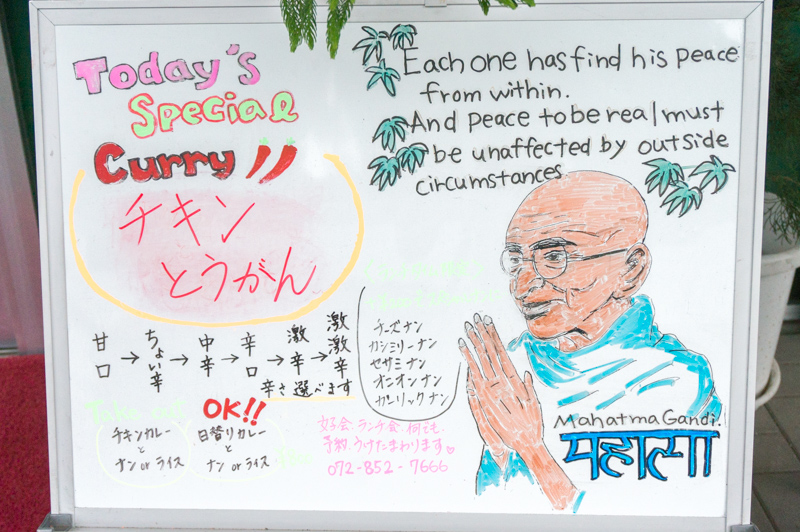 Today's
Special
Curry
チキン
とうがん
甘口→ちょい辛→中辛→辛口→激辛→激激辛
辛さ選べます
Take out OK!!
チキンカレー
と
ナン or ライス
日替りカレー
と
ナン or ライス
Each one has find his peace
from within.
And peace to be real must
be unaffected by outside
circumstances
チーズナン
カシミリーナン
セサミナン
オニオンナン
ガーリックナン
女子会、ランチ会、何でも
予約うけたまわります♡
072-852-7666
Mahatma Gandi.
महात्मा